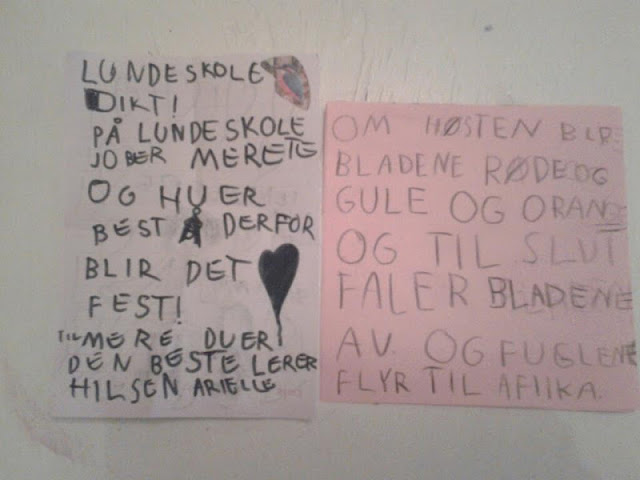 LUNDESKOLE
DIKT!
PÅ LUNDESKOLE
JOBER MERETE
OG HUER
BEST Å DERFOR
BLIR DET
FEST!
TIL MERE DUER
DEN BESTE LERER
HILSEN ARIELLE
OM HØSTEN BLR
BLADENE RØDE OG
GULE OG ORANGE
OG TIL SLUT
FALER BLADENE
AV. OG FUGLENE
FLYR TIL AFIIKA.